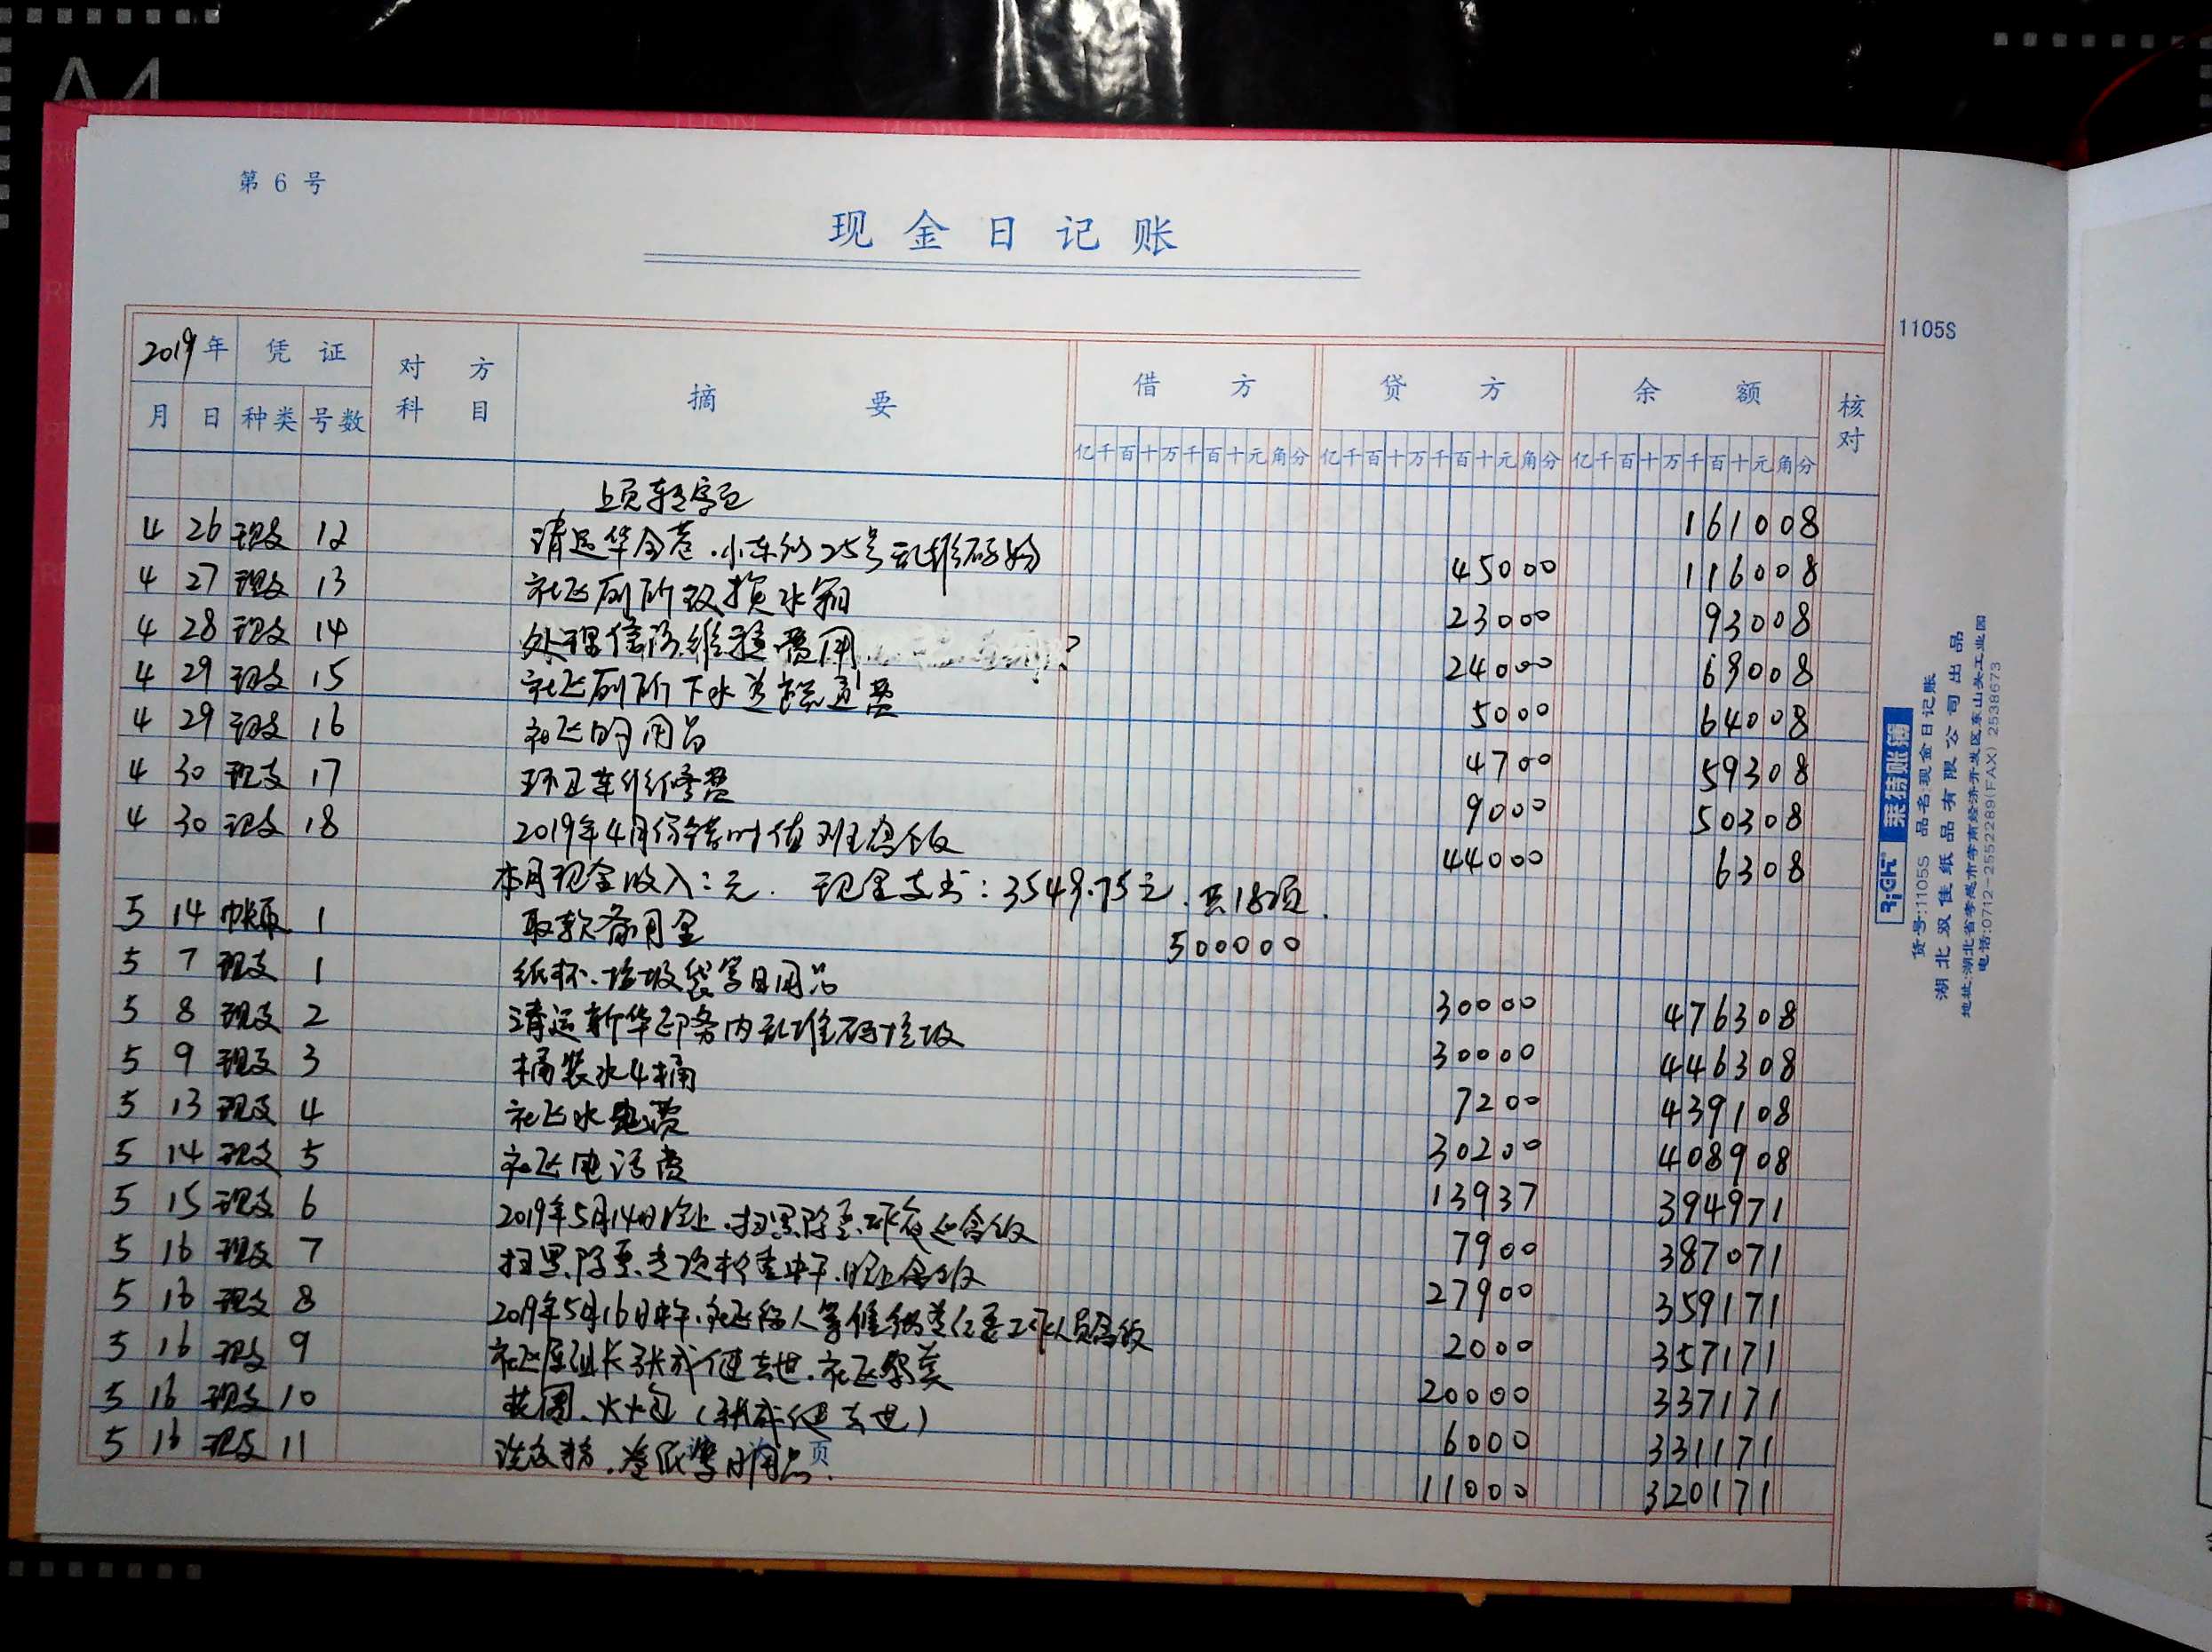 第 6 号
现金日记账
1105S
2019年 凭证 对方科目 摘要 借方 贷方 余额 核对
月 日 种类 号数 亿千百十万千百十元角分 亿千百十万千百十元角分 亿千百十万千百十元角分
上页转 161008
4 26 现支 12 清运华 巷.小东 25号乱堆 45000 116008
4 27 现支 13 社区厕所 损水箱 23000 93008
4 28 现支 14 处理信访.维稳费用 ? 24000 69008
4 29 现支 15 社区厕所下水道疏通费 5000 64008
4 29 现支 16 社区的用品 4700 59308
4 30 现支 17 环卫车维修费 9000 50308
4 30 现支 18 2019年4月份错时值班 44000 6308
本月现金收入:元. 现金支出:3549.75元.共18项.
5 14 1 取款备用金 500000
5 7 现支 1 纸杯、垃圾袋等日用品 30000 476308
5 8 现支 2 清运新华印务内乱堆码垃圾 30000 446308
5 9 现支 3 桶装水4桶 7200 439108
5 13 现支 4 社区水电费 30200 408908
5 14 现支 5 社区电话费 13937 394971
5 15 现支 6 2019年5月14日晚上.扫黑除恶. 7900 387071
5 16 现支 7 扫黑.除恶.专项 中午.晚上 27900 359171
5 16 现支 8 2019年5月16日中午.社区 人等 工作人员 2000 357171
5 16 现支 9 社区 组长张成健去世.社区 20000 337171
5 16 现支 10 花圈、火炮(张成健去世) 6000 331171
5 16 现支 11 洗衣粉.卷纸等日用品. 页 11000 320171
RiGHT 莱特账簿
货号:1105S 品名:现金日记账
湖北双佳纸品有限公司出品
地址:湖北省孝感市孝南经济开发区东山头工业园
电话:0712-2552289(FAX) 2538673
A4